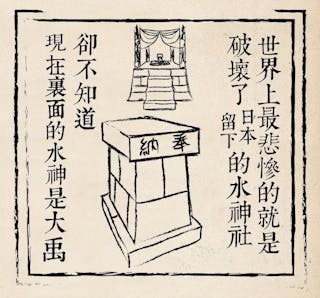 世界上最悲慘的就是
破壞了日本留下的水神社
卻不知道
現在裏面的水神是大禹
奉納